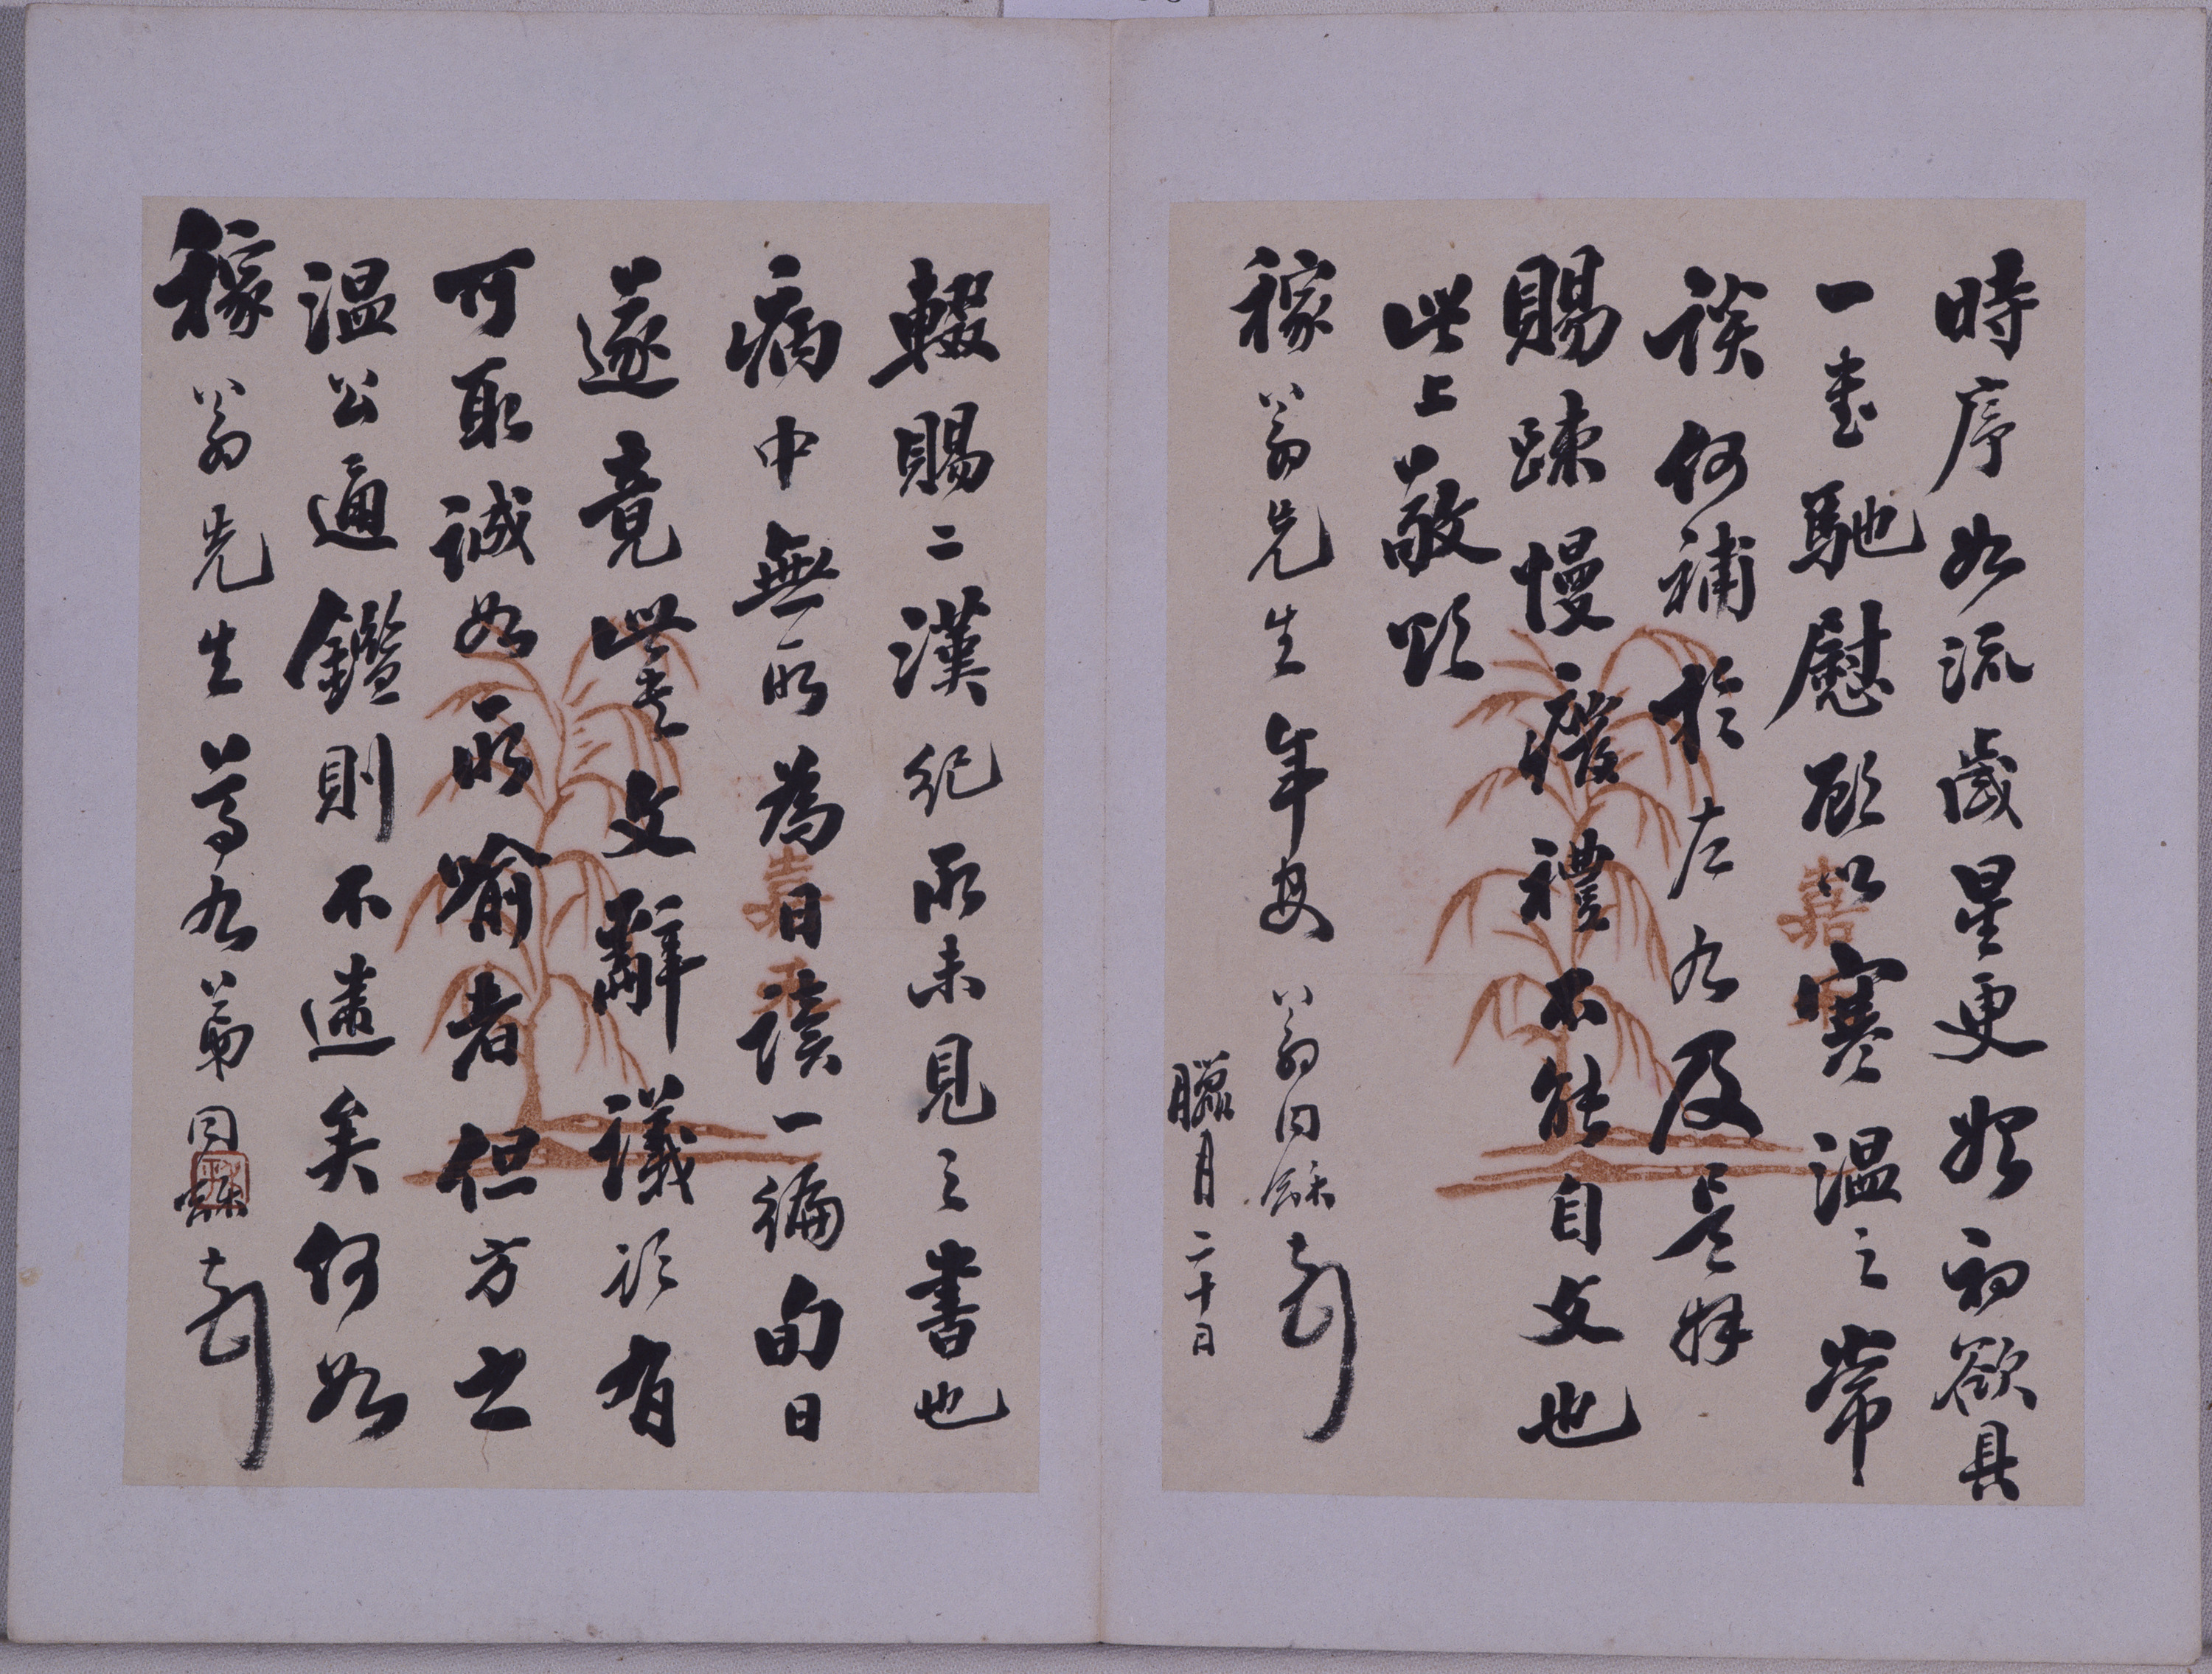 時序如流歲星更始初欲具
一書馳慰顧以寒溫之常
談何補於左右及辱拜
賜踈慢廢禮不能自文也
此上敬頌
稼翁先生年安 翁同龢頓
臘月二十日
輟賜二漢紀所未見之書也
病中無所為日讀一編旬日
遂竟此書文辭議論有
可取誠如所喻者但方之
溫公通鑑則不逮矣何如
稼翁先生尊右 弟同龢頓